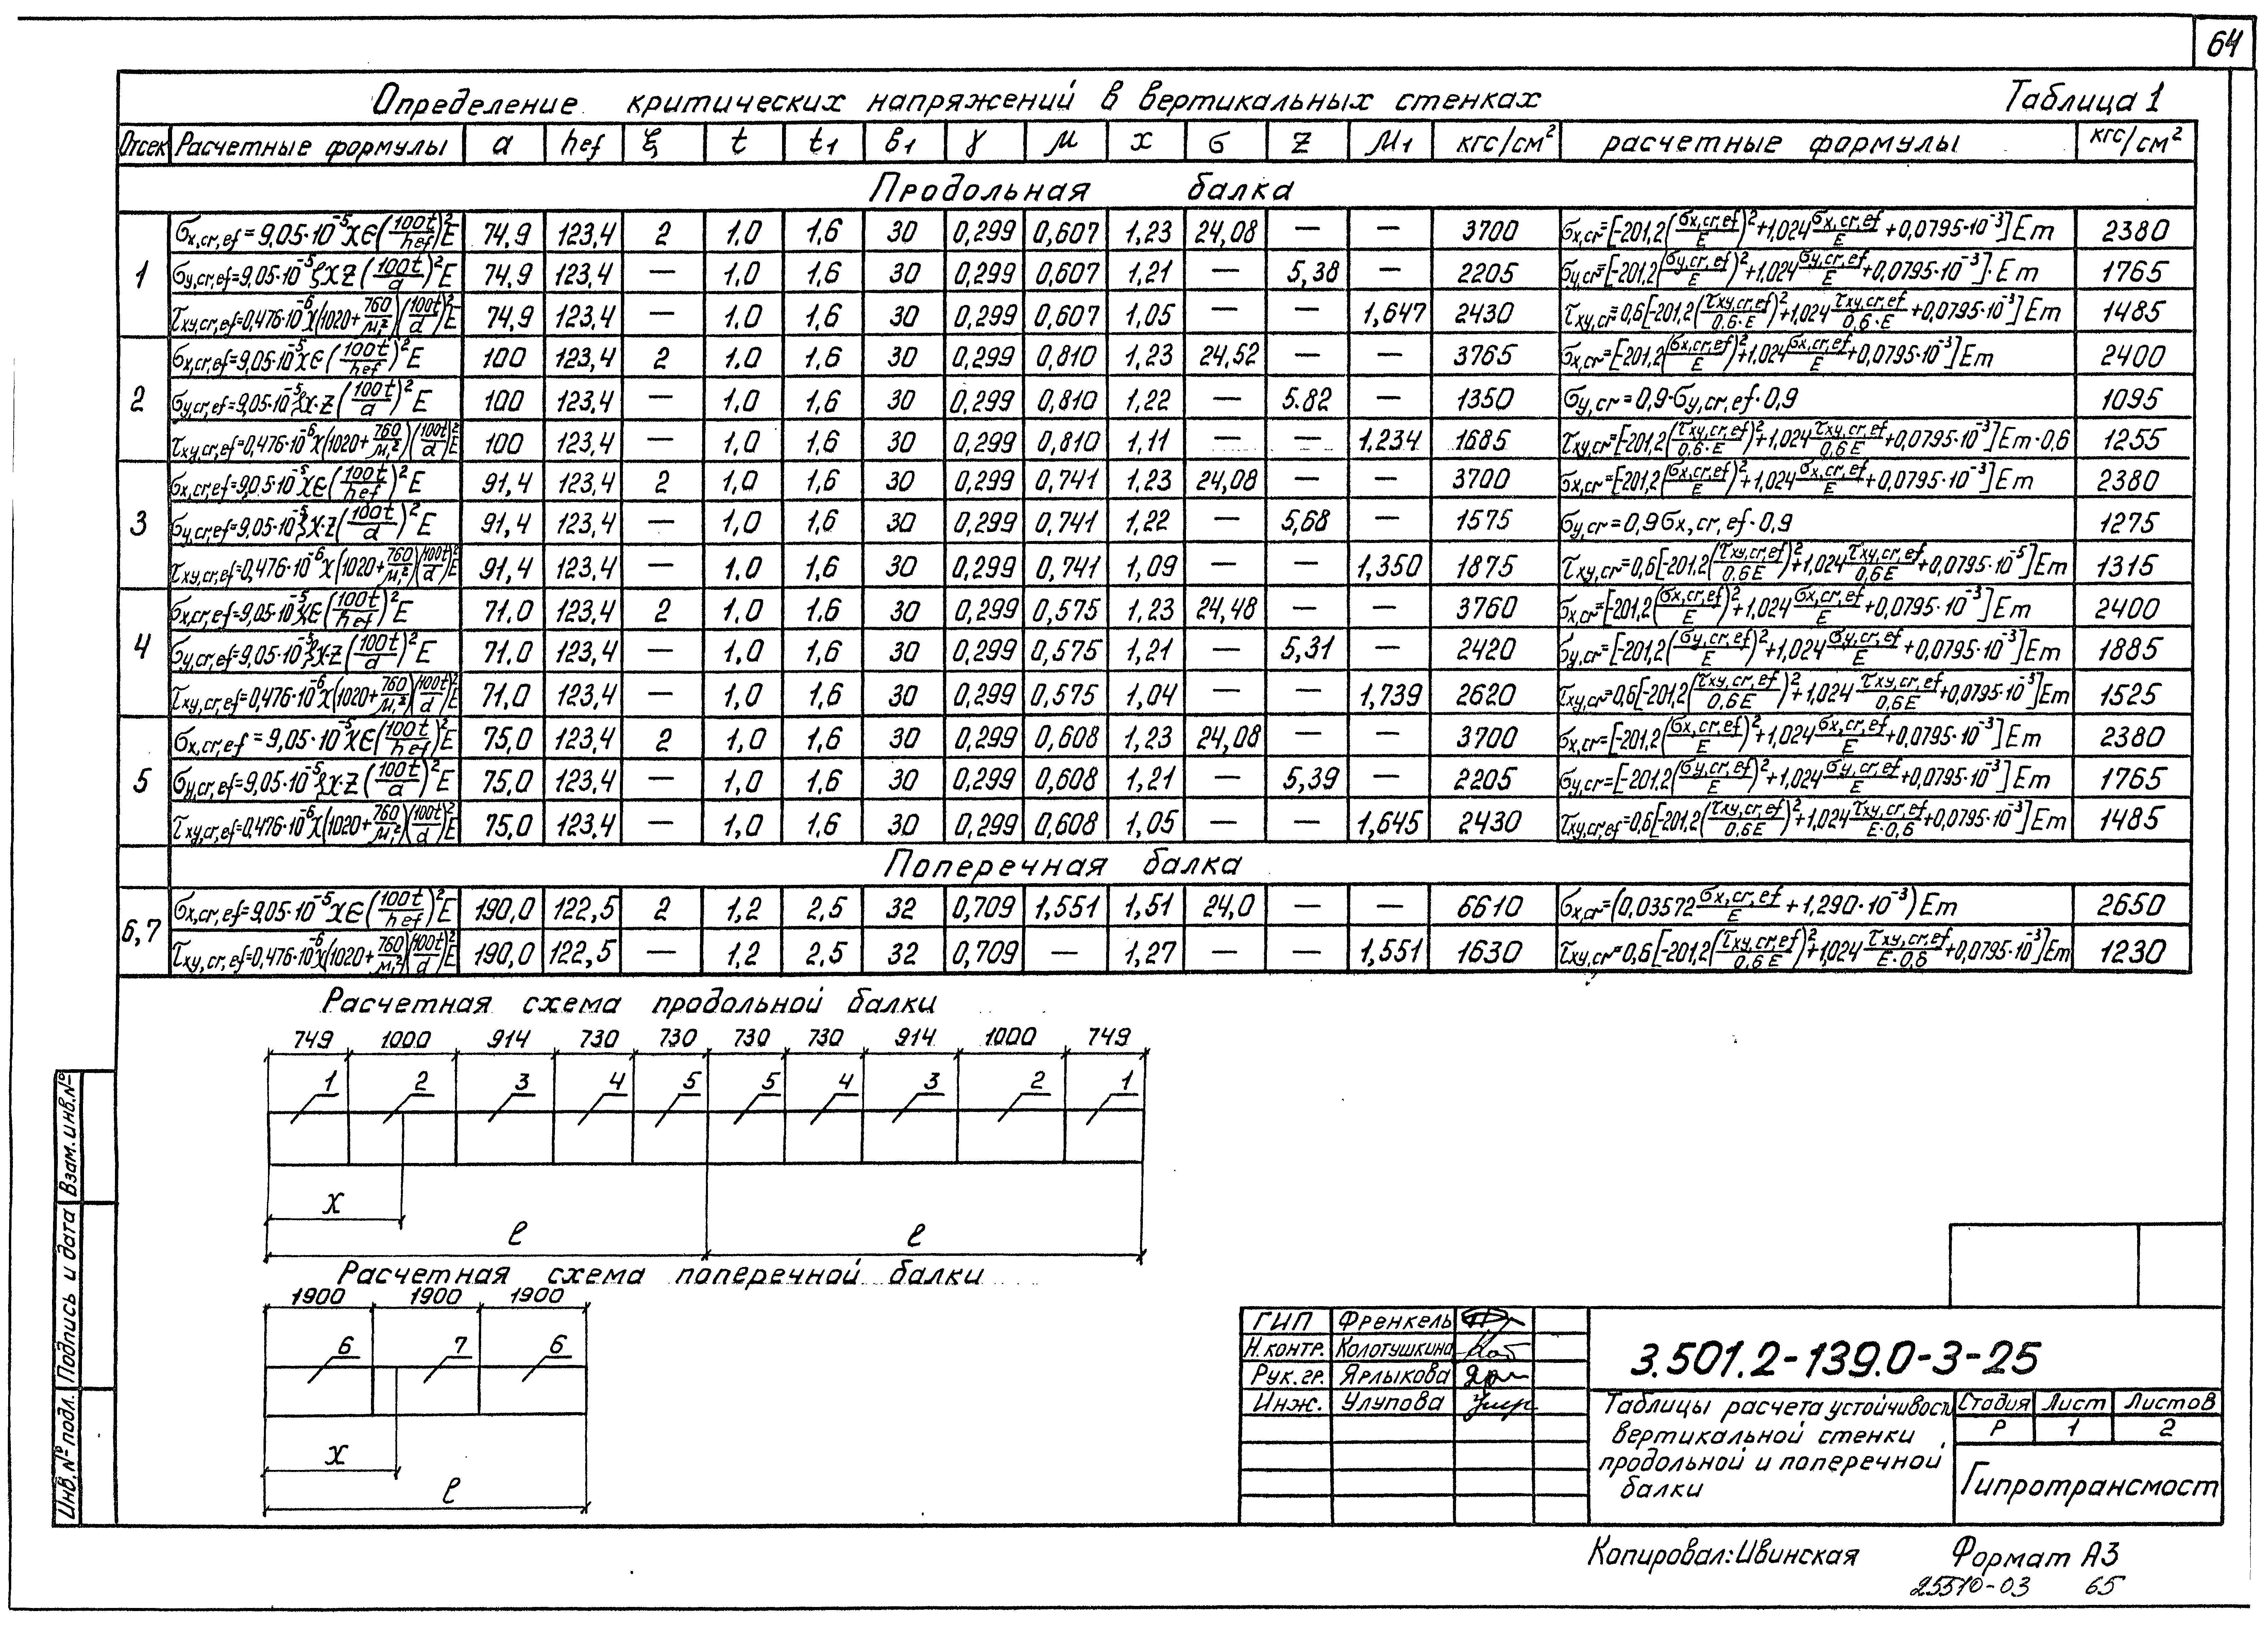 64
Определение критических напряжений в вертикальных стенках Таблица 1
Отсек Расчетные формулы a hef ξ t t1 в1 γ μ x σ z M1 кгс/см² расчетные формулы кгс/см²
Продольная балка
1
σx,cr,ef = 9,05·10⁻⁵χϵ(100t/hef)²E 74,9 123,4 2 1,0 1,6 30 0,299 0,607 1,23 24,08 — — 3700 σx,cr=[-201,2(σx,cr,ef/E)²+1,024 σx,cr,ef/E +0,0795·10⁻³]Em 2380
σy,cr,ef=9,05·10⁻⁵ξχz(100t/a)²E 74,9 123,4 — 1,0 1,6 30 0,299 0,607 1,21 — 5,38 — 2205 σy,cr=[-201,2(σy,cr,ef/E)²+1,024 σy,cr,ef/E +0,0795·10⁻³]·Em 1765
τxy,cr,ef=0,476·10⁻⁶χ(1020+760/μ1²)(100t/d)²E 74,9 123,4 — 1,0 1,6 30 0,299 0,607 1,05 — — 1,647 2430 τxy,cr=0,6[-201,2(τxy,cr,ef/0,6·E)²+1,024 τxy,cr,ef/0,6·E +0,0795·10⁻³]Em 1485
2
σx,cr,ef=9,05·10⁻⁵χϵ(100t/hef)²E 100 123,4 2 1,0 1,6 30 0,299 0,810 1,23 24,52 — — 3765 σx,cr=[-201,2(σx,cr,ef/E)²+1,024 σx,cr,ef/E +0,0795·10⁻³]Em 2400
σy,cr,ef=9,05·10⁻⁵ξχ·z(100t/a)²E 100 123,4 — 1,0 1,6 30 0,299 0,810 1,22 — 5.82 — 1350 σy,cr=0,9·σy,cr,ef·0,9 1095
τxy,cr,ef=0,476·10⁻⁶χ(1020+760/μ1²)(100t/d)²E 100 123,4 — 1,0 1,6 30 0,299 0,810 1,11 — — 1,234 1685 τxy,cr=[-201,2(τxy,cr,ef/0,6·E)²+1,024 τxy,cr,ef/0,6E +0,0795·10⁻³]Em·0,6 1255
3
σx,cr,ef=9,05·10⁻⁵χϵ(100t/hef)²E 91,4 123,4 2 1,0 1,6 30 0,299 0,741 1,23 24,08 — — 3700 σx,cr=[-201,2(σx,cr,ef/E)²+1,024 σx,cr,ef/E +0,0795·10⁻³]Em 2380
σy,cr,ef=9,05·10⁻⁵ξχ·z(100t/a)²E 91,4 123,4 — 1,0 1,6 30 0,299 0,741 1,22 — 5,68 — 1575 σy,cr=0,9σx,cr,ef·0,9 1275
τxy,cr,ef=0,476·10⁻⁶χ(1020+760/μ1²)(100t/d)²E 91,4 123,4 — 1,0 1,6 30 0,299 0,741 1,09 — — 1,350 1875 τxy,cr=0,6[-201,2(τxy,cr,ef/0,6E)²+1,024 τxy,cr,ef/0,6E +0,0795·10⁻⁵]Em 1315
4
σx,cr,ef=9,05·10⁻⁵χϵ(100t/hef)²E 71.0 123,4 2 1,0 1,6 30 0,299 0,575 1,23 24,48 — — 3760 σx,cr=[-201,2(σx,cr,ef/E)²+1,024 σx,cr,ef/E +0,0795·10⁻³]Em 2400
σy,cr,ef=9,05·10⁻⁵ξχ·z(100t/a)²E 71.0 123,4 — 1,0 1,6 30 0,299 0,575 1,21 — 5,31 — 2420 σy,cr=[-201,2(σy,cr,ef/E)²+1,024 σy,cr,ef/E +0,0795·10⁻³]Em 1885
τxy,cr,ef=0,476·10⁻⁶χ(1020+760/μ1²)(100t/d)²E 71,0 123,4 — 1,0 1,6 30 0,299 0,575 1,04 — — 1,739 2620 τxy,cr=0,6[-201,2(τxy,cr,ef/0,6E)²+1,024 τxy,cr,ef/0,6E +0,0795·10⁻³]Em 1525
5
σx,cr,ef = 9,05·10⁻⁵χϵ(100t/hef)²E 75,0 123,4 2 1,0 1,6 30 0,299 0,608 1,23 24,08 — — 3700 σx,cr=[-201,2(σx,cr,ef/E)²+1,024 σx,cr,ef/E +0,0795·10⁻³]Em 2380
σy,cr,ef=9,05·10⁻⁵ξχ·z(100t/a)²E 75,0 123,4 — 1,0 1,6 30 0,299 0,608 1,21 — 5,39 — 2205 σy,cr=[-201,2(σy,cr,ef/E)²+1,024 σy,cr,ef/E +0,0795·10⁻³]Em 1765
τxy,cr,ef=0,476·10⁻⁶χ(1020+760/μ1²)(100t/d)²E 75,0 123,4 — 1,0 1,6 30 0,299 0,608 1,05 — — 1,645 2430 τxy,cr,ef=0,6[-201,2(τxy,cr,ef/0,6E)²+1,024 τxy,cr,ef/E·0,6 +0,0795·10⁻³]Em 1485
Поперечная балка
6,7
σx,cr,ef=9,05·10⁻⁵χϵ(100t/hef)²E 190,0 122,5 2 1,2 2,5 32 0,709 1,551 1,51 24,0 — — 6610 σx,cr=(0,03572 σx,cr,ef/E +1,290·10⁻³)Em 2650
τxy,cr,ef=0,476·10⁻⁶χ(1020+760/μ1²)(100t/d)²E 190,0 122,5 — 1,2 2,5 32 0,709 — 1,27 — — 1,551 1630 τxy,cr=0,6[-201,2(τxy,cr,ef/0,6E)²+1,024 τxy,cr,ef/E·0,6 +0,0795·10⁻³]Em 1230
Расчетная схема продольной балки
749 1000 914 730 730 730 730 914 1000 749
1 2 3 4 5 5 4 3 2 1
x
ℓ ℓ
Расчетная схема поперечной балки
1900 1900 1900
6 7 6
x
ℓ
Инв.№ подл. Подпись и дата Взам.инв.№
ГИП Френкель
Н.контр. Колотушкина
Рук.гр. Ярлыкова
Инж. Улупова
3.501.2-139.0-3-25
Таблицы расчета устойчивости
вертикальной стенки
продольной и поперечной
балки
Стадия Лист Листов
Р 1 2
Гипротрансмост
Копировал: Ивинская Формат А3
25510-03 65